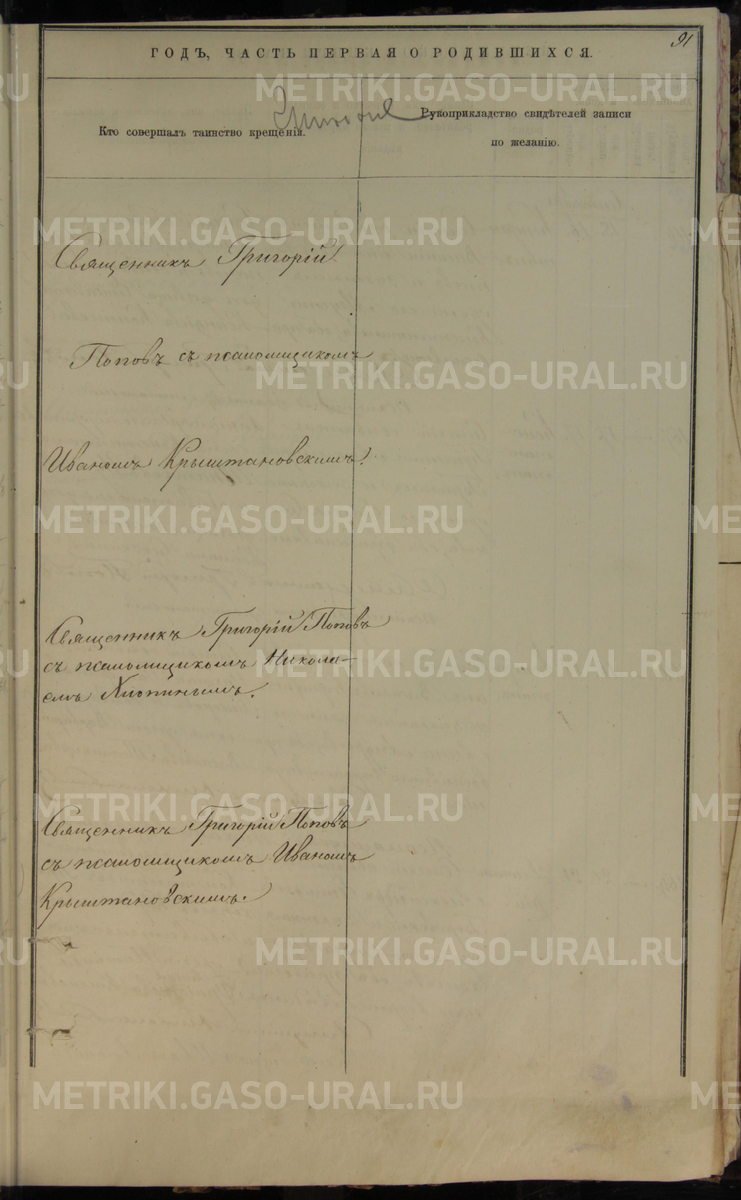 91
ГОДЪ, ЧАСТЬ ПЕРВАЯ О РОДИВШИХСЯ.
Кто совершалъ таинство крещенія.
Рукоприкладство свидѣтелей записи
по желанію.
Священникъ Григорій
Поповъ съ псаломщикомъ
Иваномъ Крыштановскимъ.
Священникъ Григорій Поповъ
съ псаломщикомъ Никола-
емъ
Священникъ Григорій Поповъ
съ псаломщикомъ Иваномъ
Крыштановскимъ.
METRIKI.GASO-URAL.RU